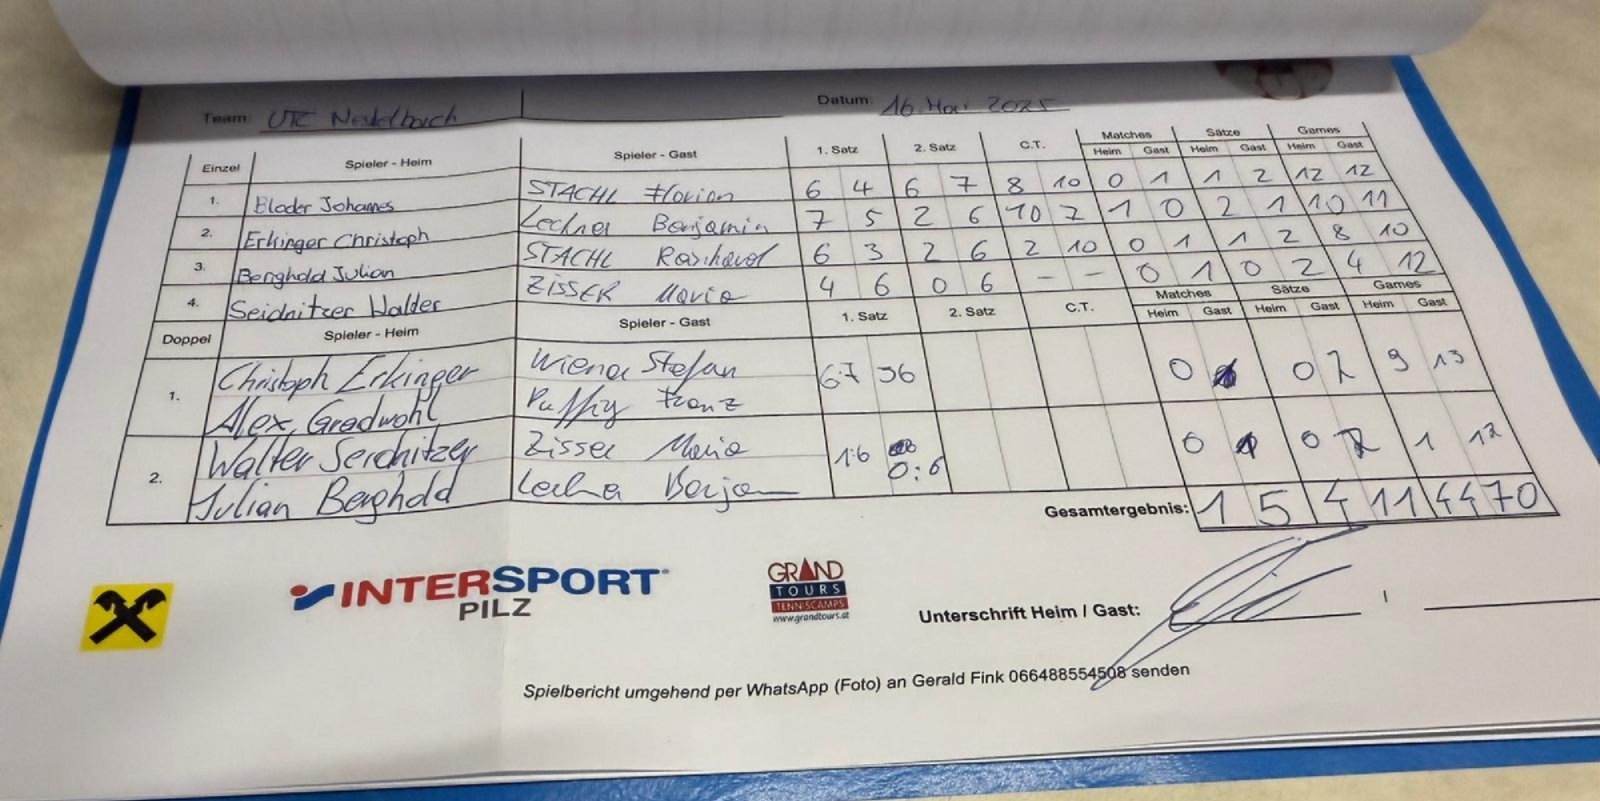 Team: UTC Nestelbach Datum: 16. Mai 2025
Matches Sätze Games
Einzel Spieler - Heim Spieler - Gast 1. Satz 2. Satz C.T. Heim Gast Heim Gast Heim Gast
1. Bloder Johannes STACHL Florian 6 4 6 7 8 10 0 1 1 2 12 12
2. Erkinger Christoph Lechner Benjamin 7 5 2 6 10 7 1 0 2 1 10 11
3. Berghold Julian STACHL 6 3 2 6 2 10 0 1 1 2 8 10
4. Seidnitzer Walder ZISSER Mario 4 6 0 6 - - 0 1 0 2 4 12
Matches Sätze Games
Doppel Spieler - Heim Spieler - Gast 1. Satz 2. Satz C.T. Heim Gast Heim Gast Heim Gast
1. Christoph Erkinger Wiener Stefan 6 7 36 0 0 2 9 13
Alex Gradwohl Franz
2. Walter Seidnitzer Zisser Mario 1:6 0:6 0 1 0 2 1 12
Julian Berghold
Gesamtergebnis: 1 5 4 11 44 70
INTERSPORT
PILZ
GRAND
TOURS
TENNISCAMPS
www.grandtours.at
Unterschrift Heim / Gast: /
Spielbericht umgehend per WhatsApp (Foto) an Gerald Fink 066488554508 senden